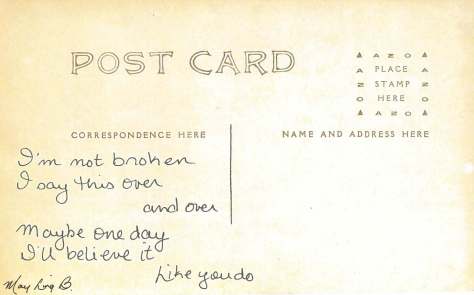 POST CARD
AZO
PLACE
STAMP
HERE
AZO
CORRESPONDENCE HERE
NAME AND ADDRESS HERE
I'm not broken
I say this over
and over
Maybe one day
I'll believe it
Like you do
B.